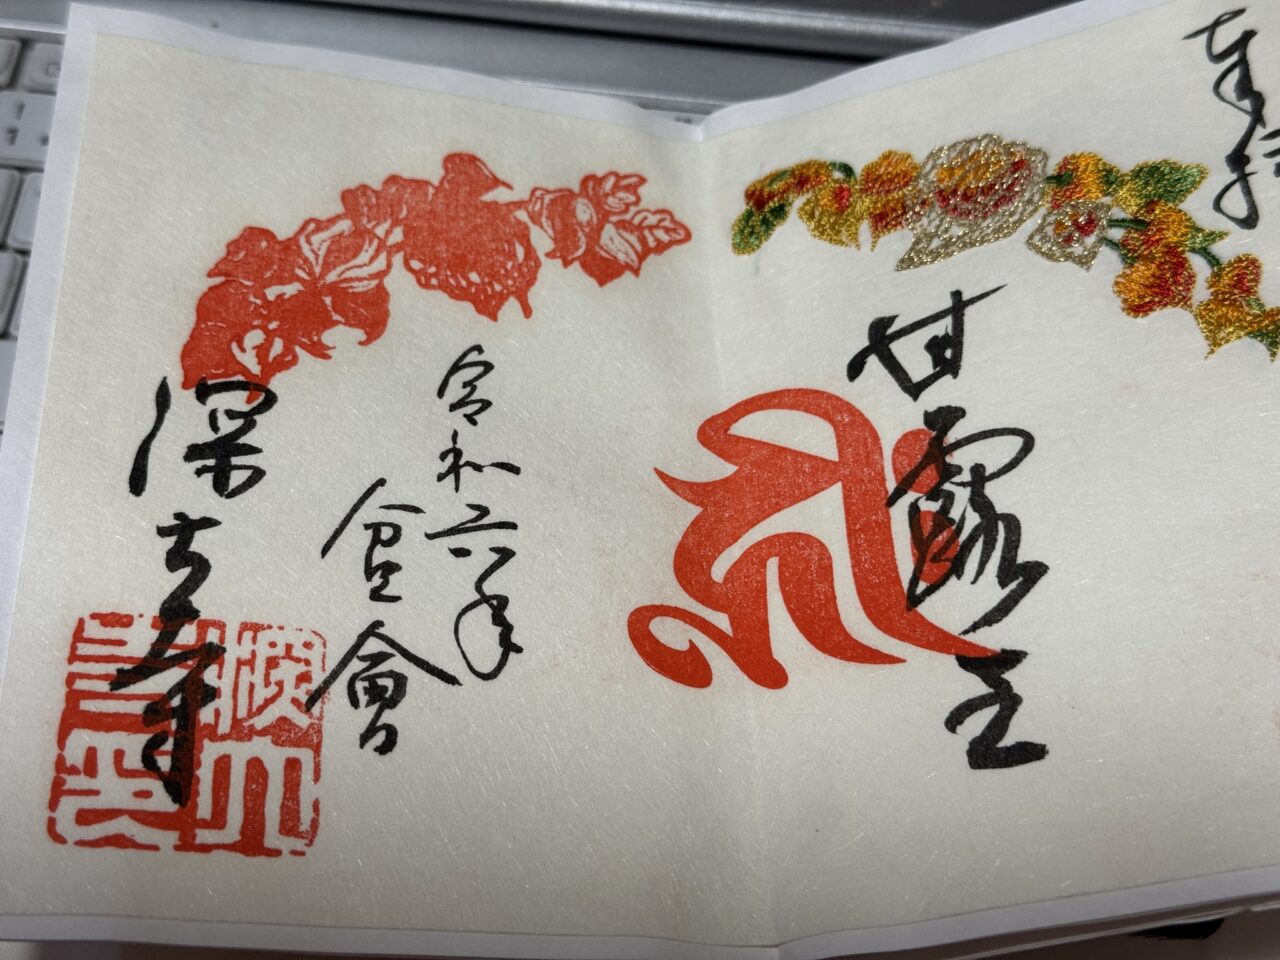 奉
甘露王
令和六年
盆會
深大寺
深大寺印